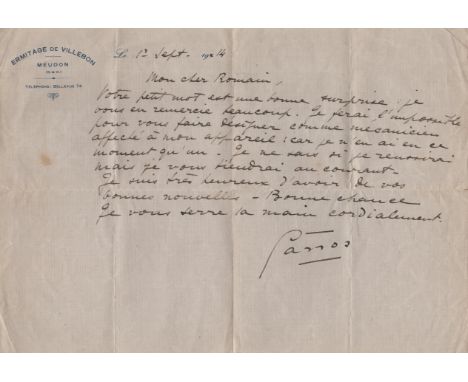 ERMITAGE DE VILLEBON
MEUDON
TÉLÉPHONE: BELLEVUE 74
Le 1er Sept. 1914
Mon cher Romain,
Votre petit mot est une bonne surprise, je
vous en remercie beaucoup. Je ferai l'impossible
pour vous faire désigner comme mécanicien
affecté à mon appareil: car je n'en ai en ce
moment qu'un. Je ne sais si je reussirai
mais je vous tiendrai au courant.
Je suis très heureux d'avoir de vos
bonnes nouvelles - Bonne chance
Je vous serre la main cordialement.
Garros